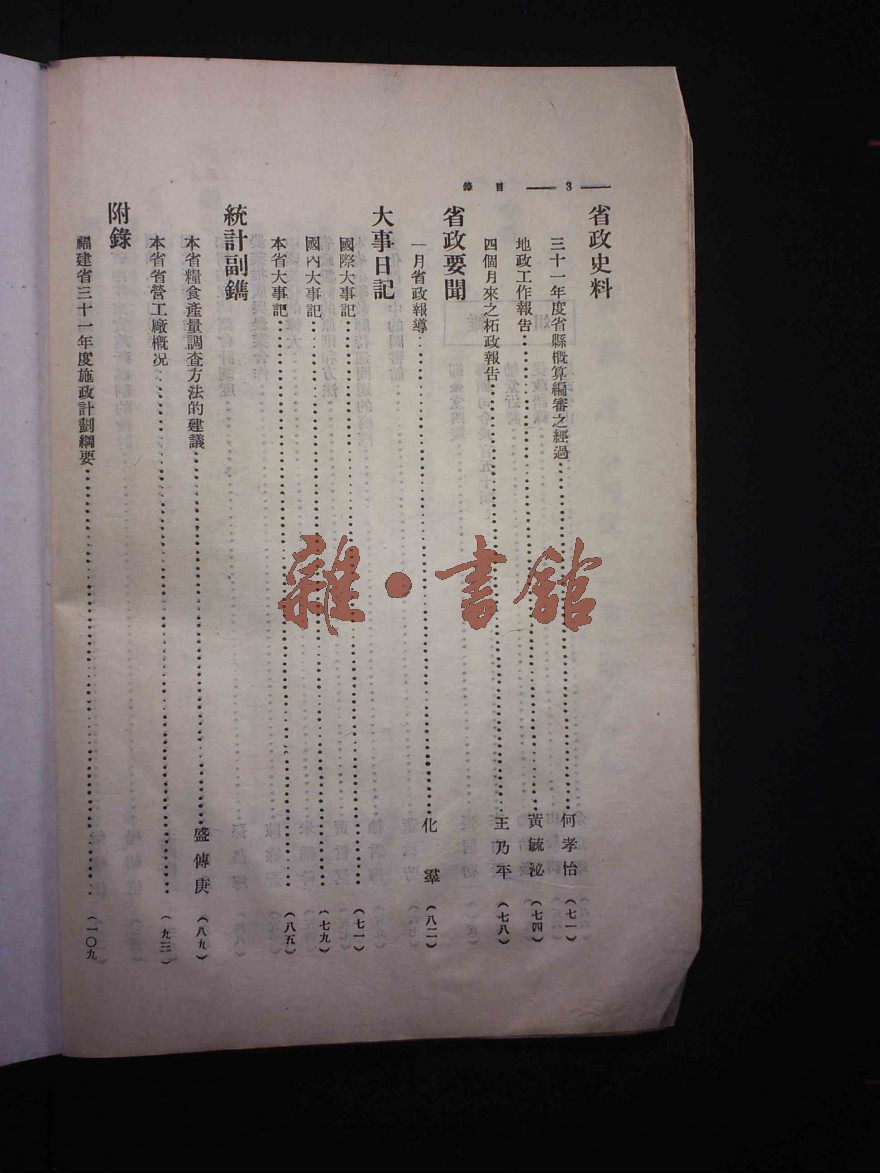 3 目錄
省政史料
三十一年度省縣概算編審之經過 何孝怡 (七一)
地政工作報告 黃毓泌 (七四)
四個月來之柘政報告 王乃平 (七八)
省政要聞
一月省政報導 化羣 (八二)
大事日記
國際大事記 (七一)
國內大事記 (七九)
本省大事記 (八五)
統計副鐫
本省糧食產量調查方法的建議 盛傳庚 (八九)
本省省營工廠概況 (九三)
附錄
福建省三十一年度施政計劃綱要 (一〇九
雜·書館